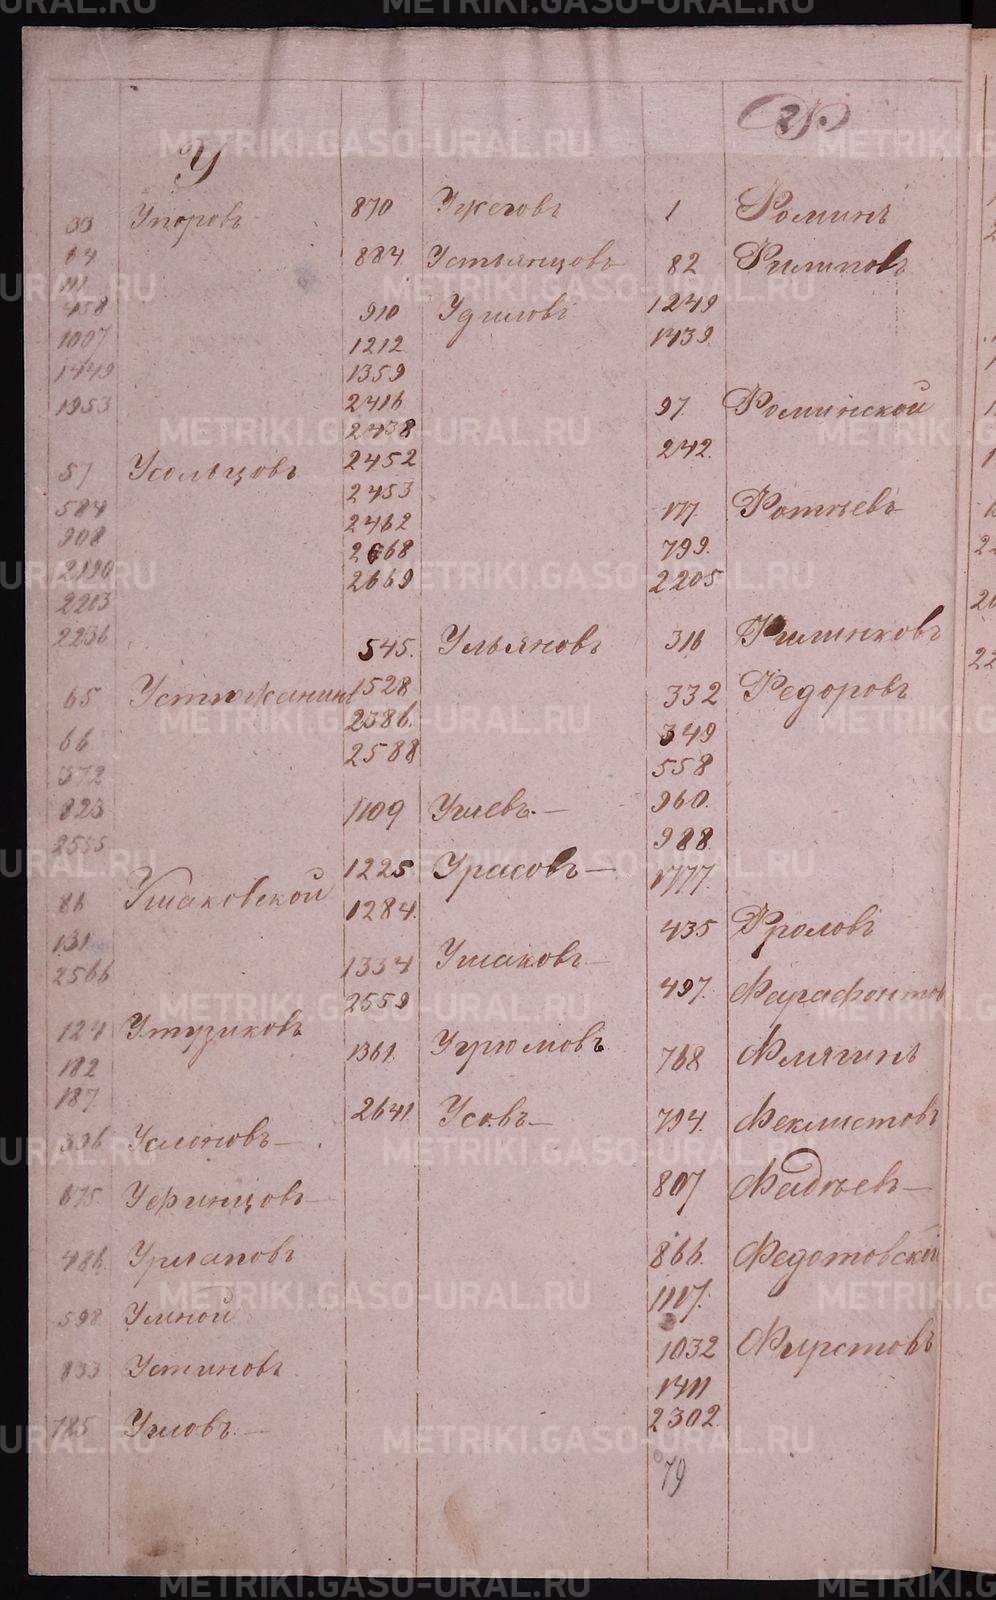 У
33 Упоровъ
84
111
458
1007
1449
1953
57 Усольцовъ
584
908
2190
2203
2236
65 Устюжанинъ
66
372
823
2555
86 Ушаковской
131
2566
124 Утузиковъ
182
187
396 Услоновъ
675 Уфинцовъ
486 Урлаповъ
598 Умной
833 Устиновъ
785 Угловъ
870 Ужеговъ
884 Устьянцовъ
910 Удиловъ
1212
1359
2416
2438
2452
2453
2462
2668
2669
545. Ульяновъ
1528
2386.
2588
1109 Углевъ
1225 Урасовъ
1284.
1334 Ушаковъ
2559
1361. Угрюмовъ
2641 Усовъ
Ф.
1 Фоминъ
82 Филиповъ
1249
1439
97 Фоминской
242.
177. Фотѣевъ
799.
2205
316 Филинковъ
332 Федоровъ
349
558
960.
988.
1777.
435 Фроловъ
497. Фарафонтовъ
768 Флягинъ
794. Феклистовъ
807 Фадѣевъ
866. Федотовской
1107.
1032 Фирстовъ
1411
2302
79
METRIKI.GASO-URAL.RU